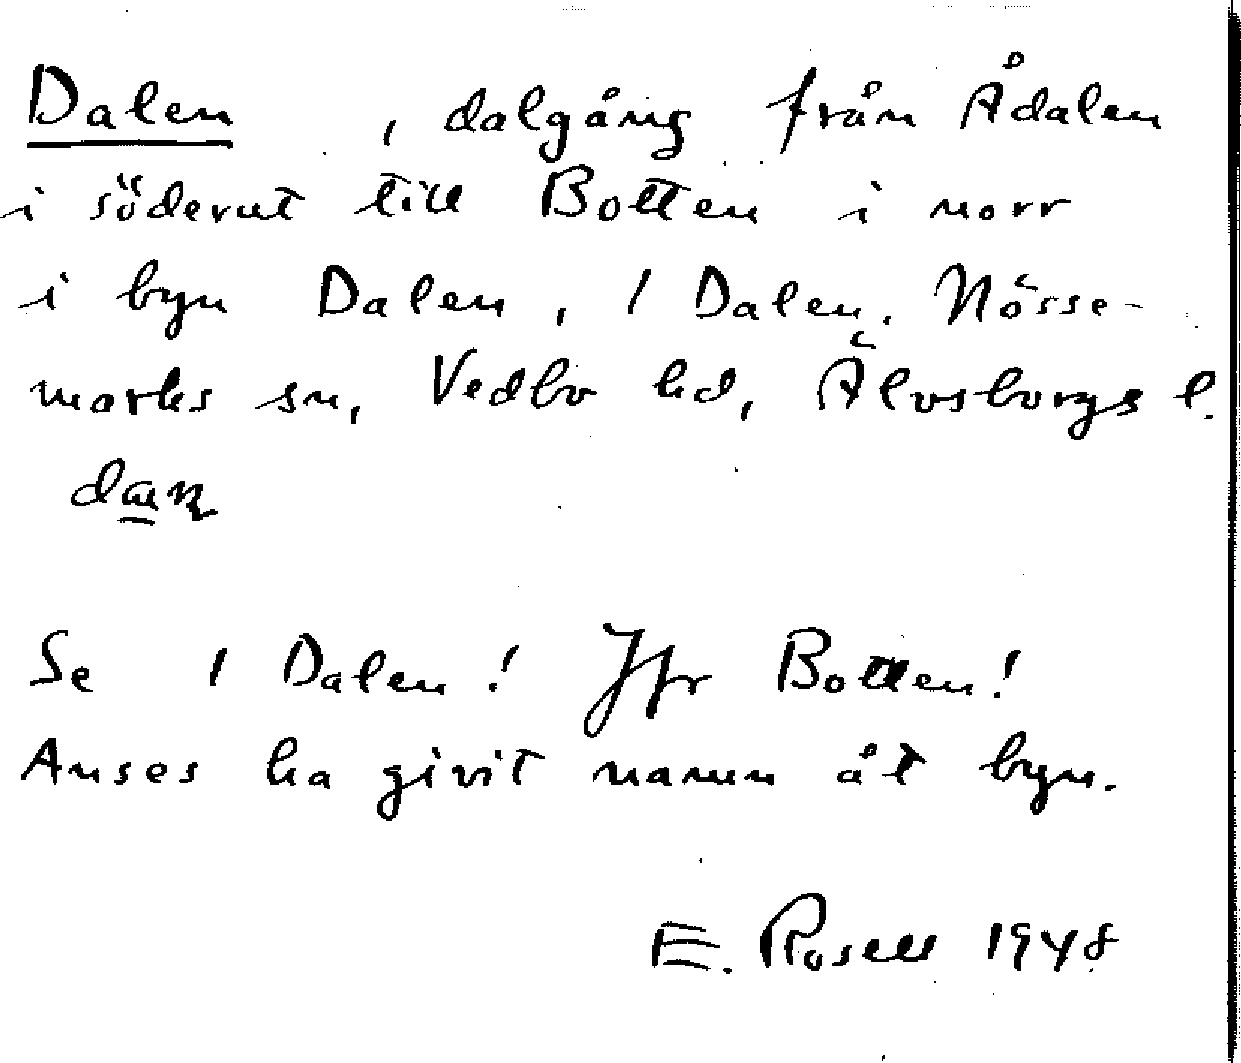 Dalen , dalgång från Ådalen
i söderut till Botten i norr
i byn Dalen, 1 Dalen. Nösse-
marks sn, Vedbo hd, Älvsborgs l.
Se 1 Dalen! Jfr Botten!
Anses ha givit namn åt byn.
E. Rosell 1948